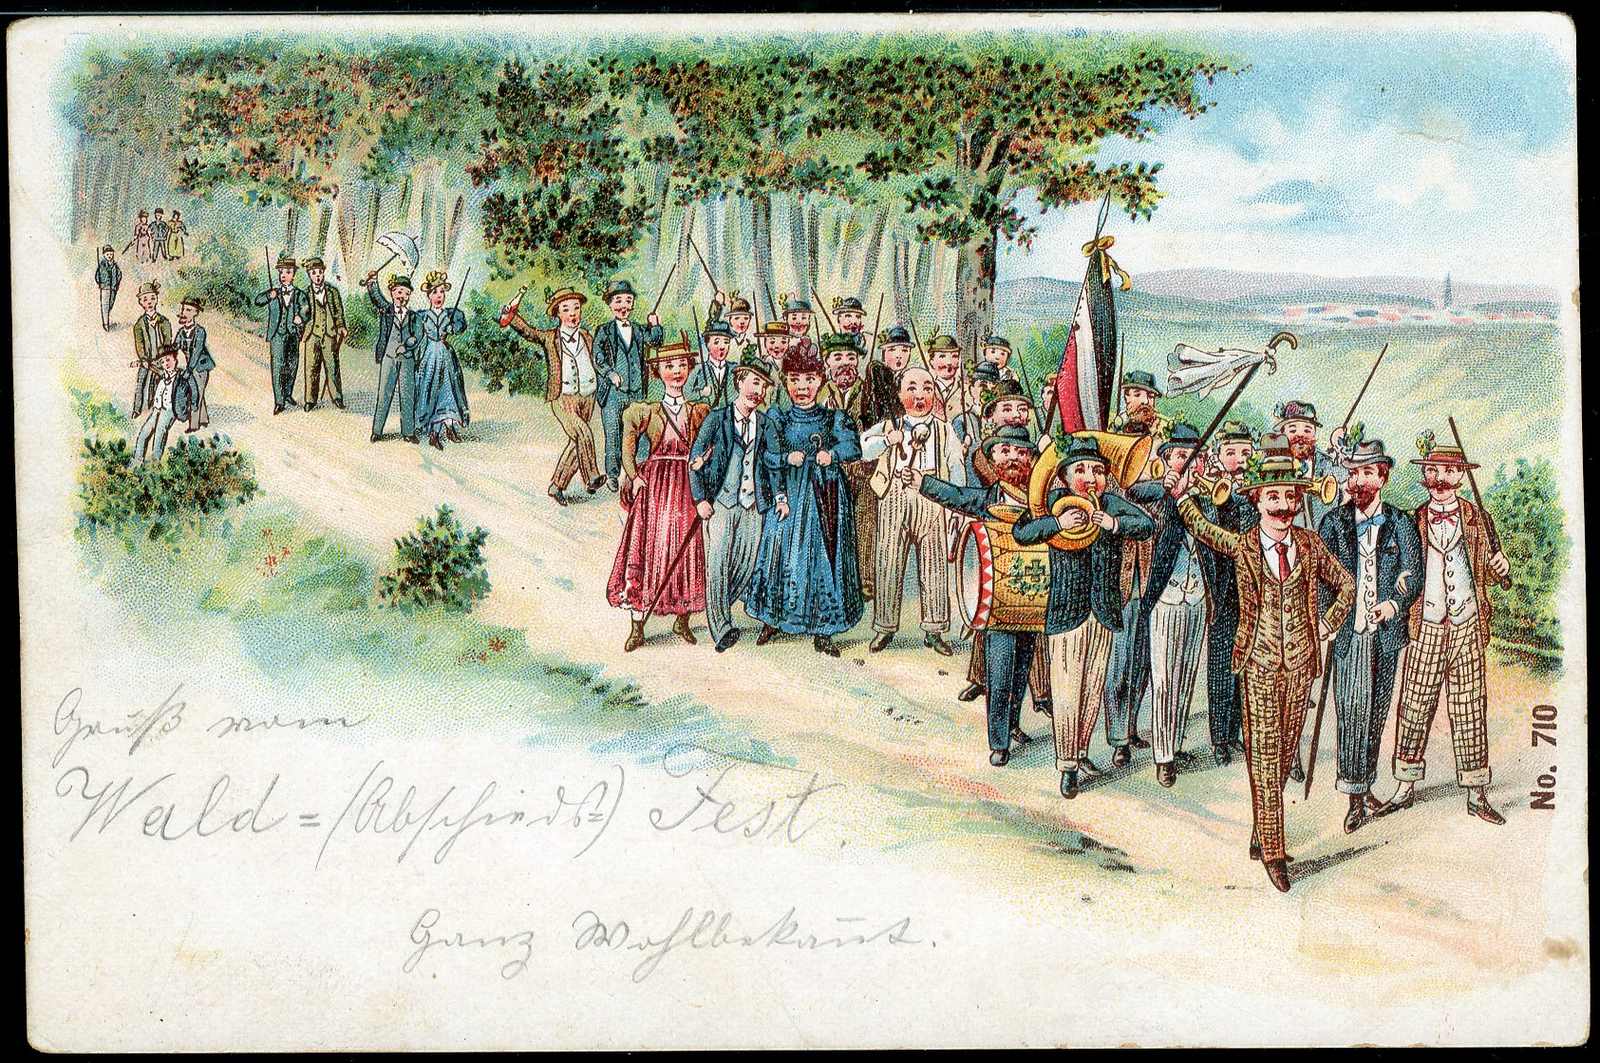 Gruß vom
Wald=(Abschieds=) Fest.
Ganz Wohlbekannt.
No. 710